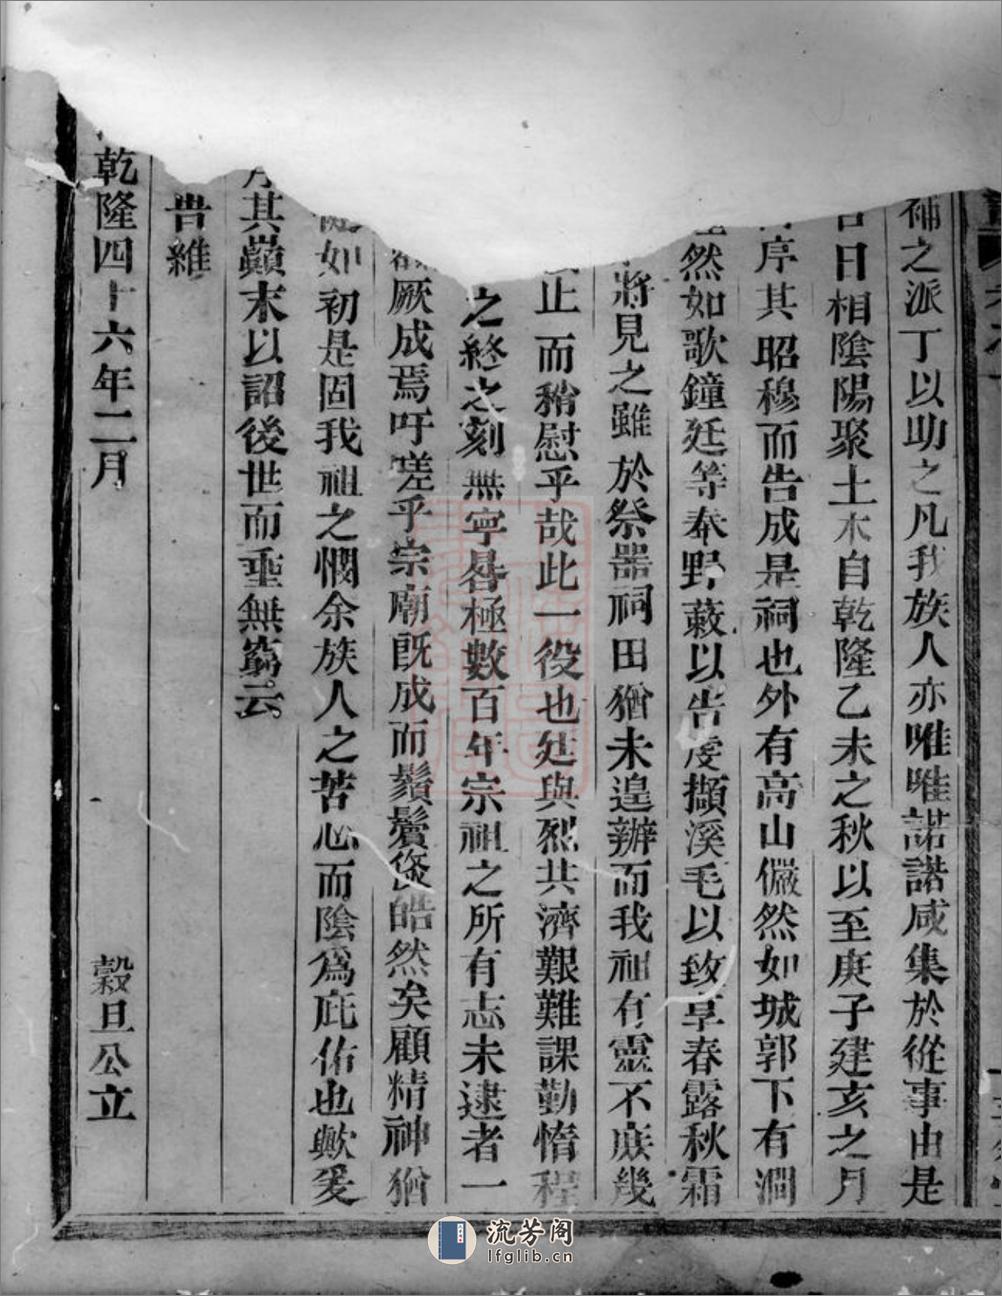 補之派丁以助之凡我族人亦唯唯諾諾咸集於從事由是
日相陰陽聚土木自乾隆乙未之秋以至庚子建亥之月
序其昭穆而告成是祠也外有高山儼然如城郭下有澗
然如歌鐘廷等奉野蔌以告虔擷溪毛以致享春露秋霜
將見之雖於祭器祠田猶未遑辦而我祖有靈不庶幾
止而稍慰乎哉此一役也廷與烈共濟艱難課勤惰程
之終之刻無寧晷極數百年宗祖之所有志未逮者一
厥成焉吁嗟乎宗廟既成而鬚鬢倐皓然矣顧精神猶
如初是固我祖之憫余族人之苦心而陰為庇佑也歟爰
序其巔末以詔後世而垂無窮云
旹維
乾隆四十六年二月 穀旦公立
流芳阁
lfglib.cn